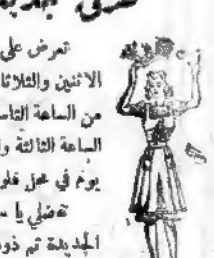 تعرض على
الاثنين والثلاثا
من الساعة التاس
الساعة الثالثة وا
يوم في محل فلو
تفضلي يا س
الجديدة ثم ذو